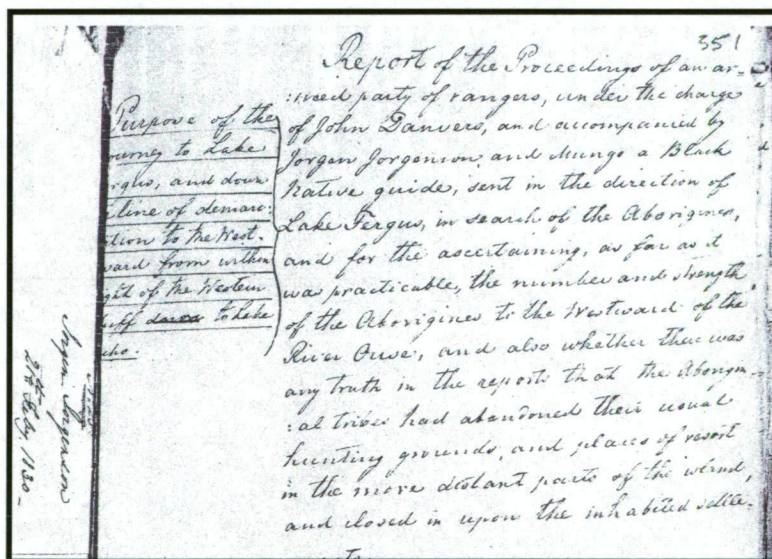 351
Report of the Proceedings of an ar=
:med party of rangers, under the charge
of John Danvers, and accompanied by
Jorgen Jorgenson and Mungo a Black
Native guide, sent in the direction of
Lake Fergus, in search of the Aborigines,
and for the ascertaining, as far as it
was practicable, the number and strength
of the Aborigines to the Westward of the
River Ouse, and also whether there was
any truth in the reports that the Aborigin=
:al tribes had abandoned their usual
hunting grounds, and places of resort
in the more distant parts of the island,
and closed in upon the inhabited settle=
Purpose of the
ourney to Lake
ergus, and down
line of demar:
ation to the West-
ward from within
ght of the Western
uff to Lake
cho.
Jorgen Jorgenson
24th Feby 1830-